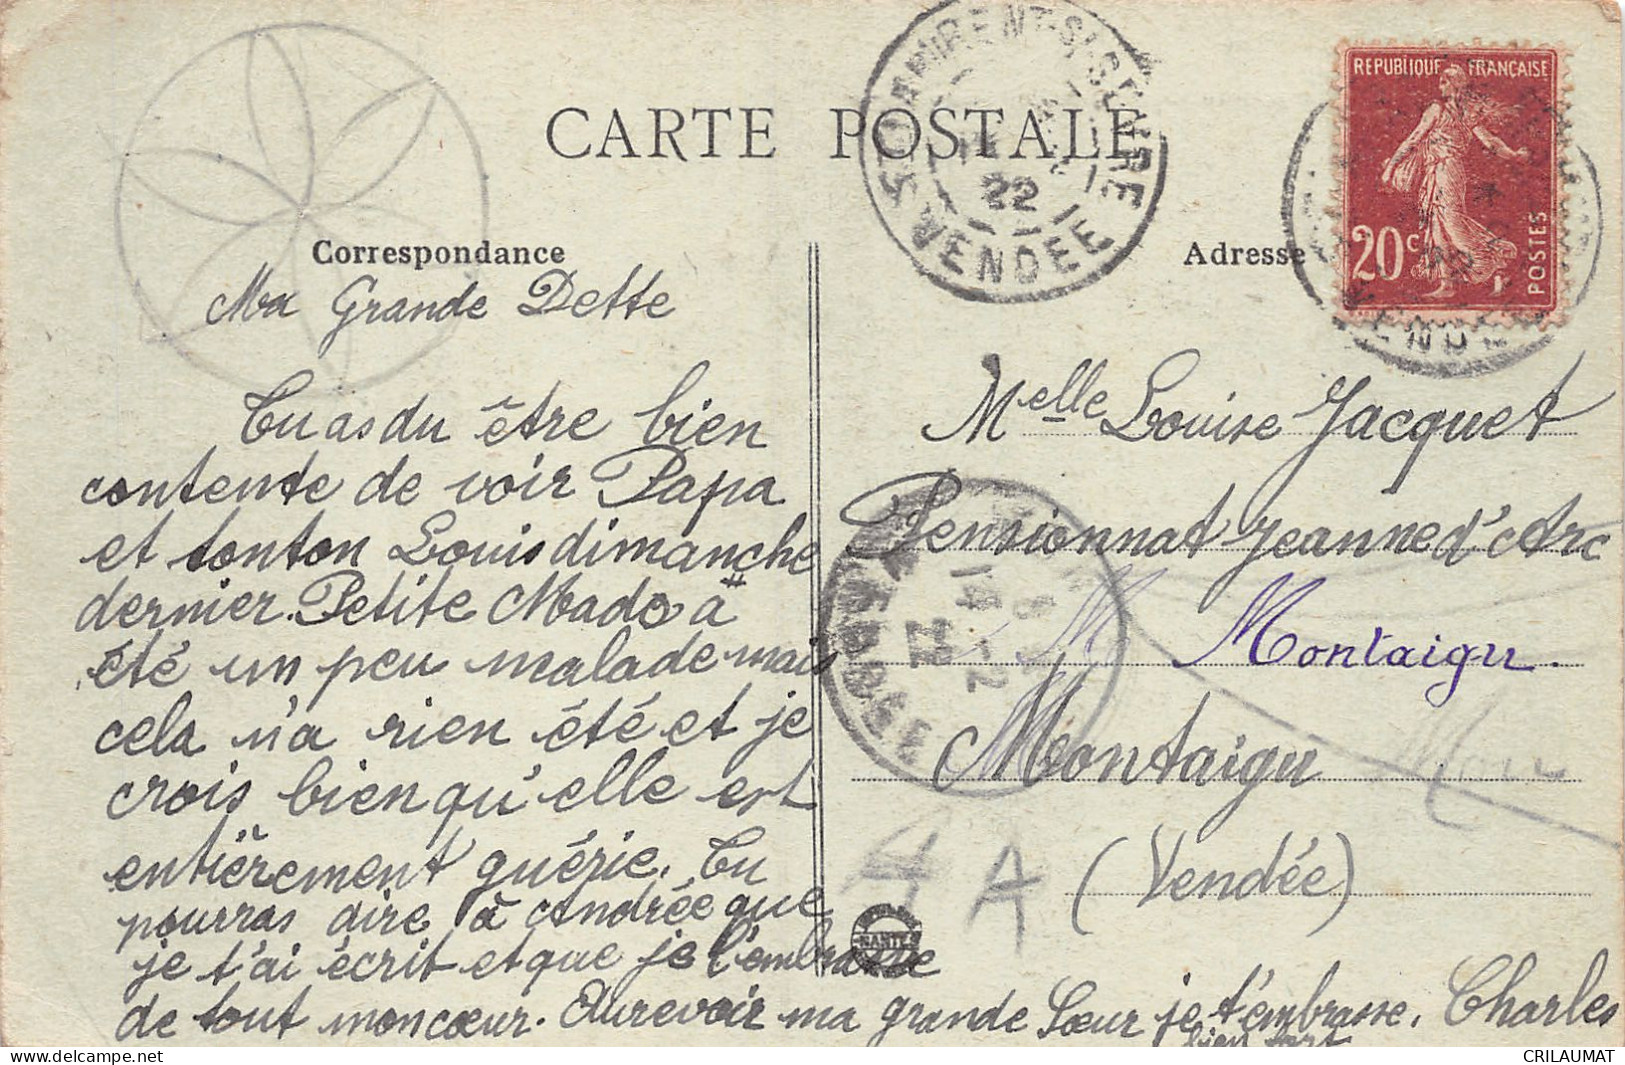 CARTE POSTALE
Correspondance
Adresse
REPUBLIQUE FRANÇAISE
20c
POSTES
VENDEE
22
Ma Grande Dette
Tu as du être bien
contente de voir Papa
et tonton Louis dimanche
dernier. Petite Mado a
été un peu malade mais
cela n'a rien été et je
crois bien qu'elle est
entièrement guérie. Tu
pourras dire à Andrée que
je t'ai écrit et que je l'embrasse
de tout mon cœur. Aurevoir ma grande Sœur je t'embrasse. Charles
bien fort
Melle Louise Jacquet
Pensionnat Jeanne d'Arc
Montaigu.
Montaigu
(Vendée)
A
NANTES
CRILAUMAT